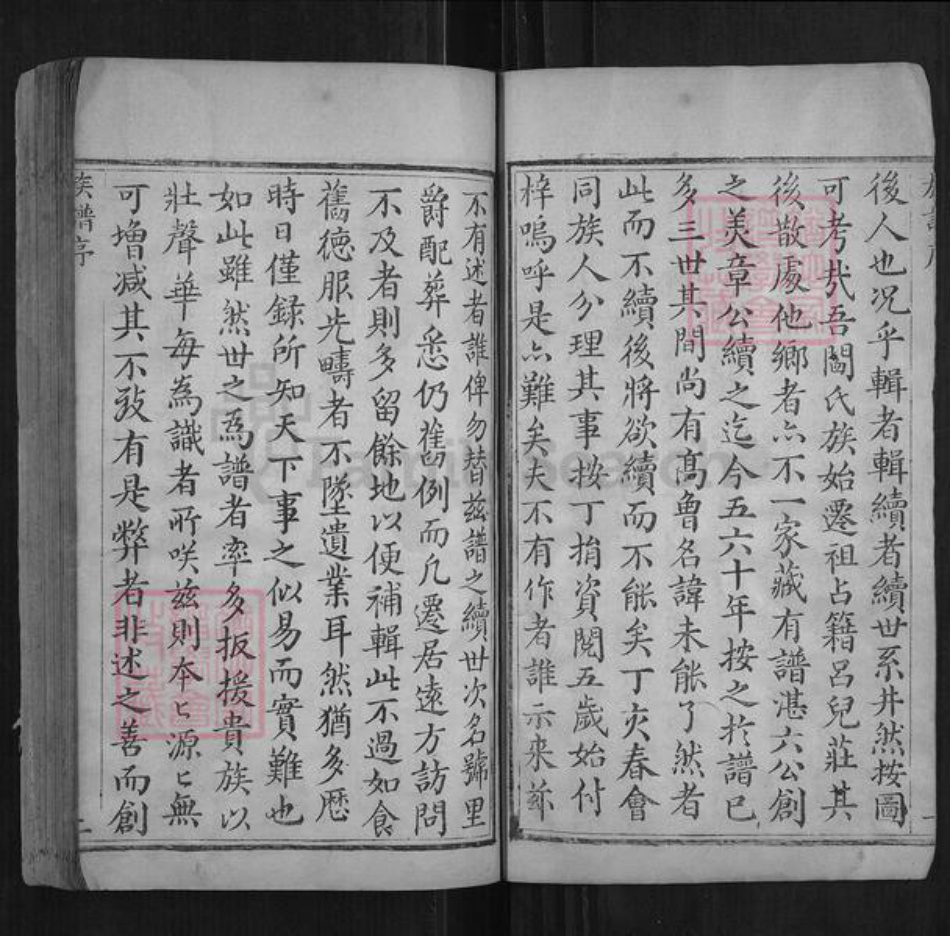 後人也况乎輯者輯續者續世系井然按圖
可考㢤吾閻氏族始遷祖占籍呂兒莊其
後散處他鄉者亦不一家藏有譜湛六公創
之美章公續之迄今五六十年按之於譜已
多三世其間尚有高曾名諱未能了然者
此而不續後將欲續而不能矣丁亥春會
同族人分理其事按丁捐資閱五歲始付
梓嗚呼是亦難矣夫不有作者誰示来茲
不有述者誰俾勿替兹譜之續世次名號里
爵配葬悉仍舊例而凡遷居遠方訪問
不及者則多留餘地以便補輯此不過如食
舊德服先疇者不墜遺業耳然猶多歷
時日僅録所知天下事之似易而實難也
如此雖然世之爲譜者率多扳援貴族以
壯聲華每為識者所咲兹則本〻源〻無
可增减其不致有是弊者非述之善而創
族譜序
二